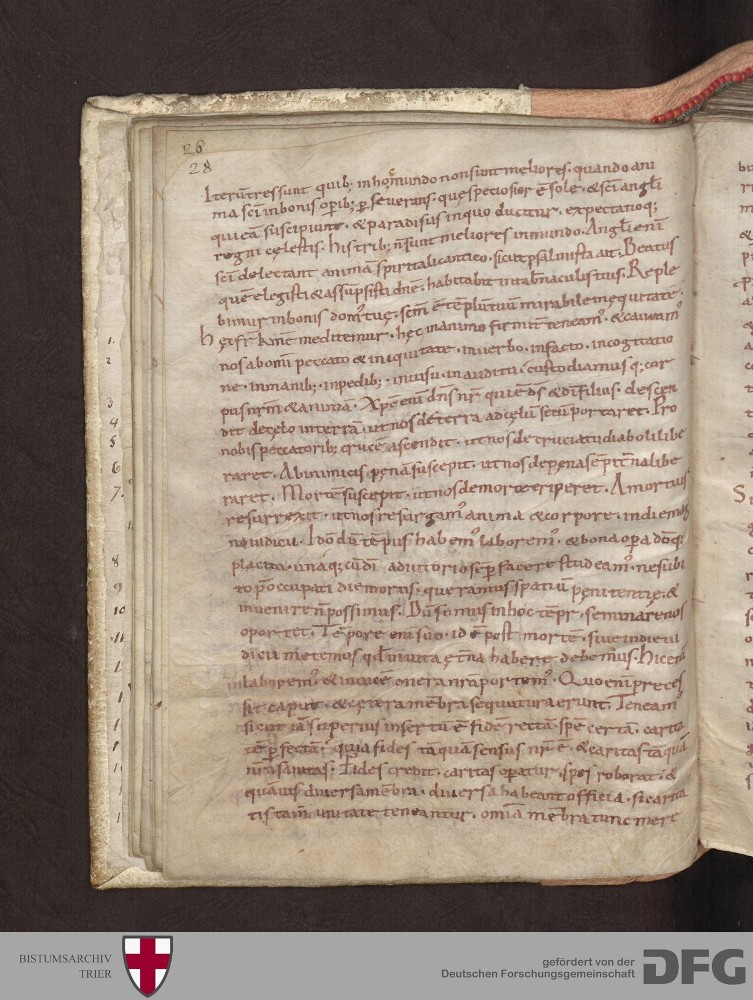 26
28
Iterū tres sunt quib; in hoc mundo non sunt meliores. quando ani
ma sc̄i in bonis op̄ib; p̄severans. quę speciosior ē sole. & sc̄i angl̄i
qui eā suscipiunt. & paradisus in quo ducitur. expectatioq;
regni cęlestis. His trib; n̄ sunt meliores in mundo. Angl̄i enī
sc̄i delectant animā spiritali cantico. sicut psalmista ait. Beatus
quē elegisti & assūpsisti dn̄e. habitabit in tab̄naculis tuis. Reple
bimur in bonis dom' tuę. sc̄m ē tēplū tuū mirabile in equitate.
Hęc fr̄ kmē meditemur. hęc in animo firmit̄ teneam'. & caveam'
nos ab omī peccato & iniquitate. in verbo. in facto. in cogitatio
ne. in manib;. in pedib;. in visu. in auditu. custodiamus q; cor
pus nr̄m & animā. Xp̄c enī dn̄s nr̄ qui ē ds̄ & dī filius. descen
dit de cęlo in terrā. ut nos de terra ad cęlū secū portaret. Pro
nobis peccatorib; crucē ascendit. ut nos de cruciatu diaboli libe
raret. Ab inimicis pęnā suscepit. ut nos de pęna sēpit̄na libe
raret. Mortē suscepit. ut nos de morte eriperet. A mortuis
resurrexit. ut nos resurgam' anima & corpore. in die mag
no iudicii. Ido dū tēpus habem' laborem'. & bona op̄a dōq;
placita. unaq; cū dī adiutorio sēp̄ facere studeam'. ne subi
to p̄occupati die mortis. queramus spatiū pęnitentię. &
invenire n̄ possimus. Dū sumus in hoc tēpr̄. seminare nos
oportet. Tēpore enī suo. id ē post mortē. sive in die iu
dicii metemos. qd̄ in vita ęt̄na habere debemus. Hic enī
laborem'. & invicē onera nr̄a portem'. Quo enī preces
sit caput. & cetera mēbra sequitura erunt. Teneam'
sicut iā superius insertū ē fidē rectā. spē certā. carita
tē p̄fectā. quia fides tāquā sensus nr̄ ē. & caritas tāquā
nr̄a sanitas. Fides credit. caritas op̄atur. spes roborat. &
quamvis diversa mēbra. diversa habeant officia. si carita
tis tam̄ unitate teneantur. omīa mēbra tunc mere
1.
2
3
4
5
6
7.
8
9
10
11
12
BISTUMSARCHIV
TRIER
gefördert von der
Deutschen Forschungsgemeinschaft
DFG